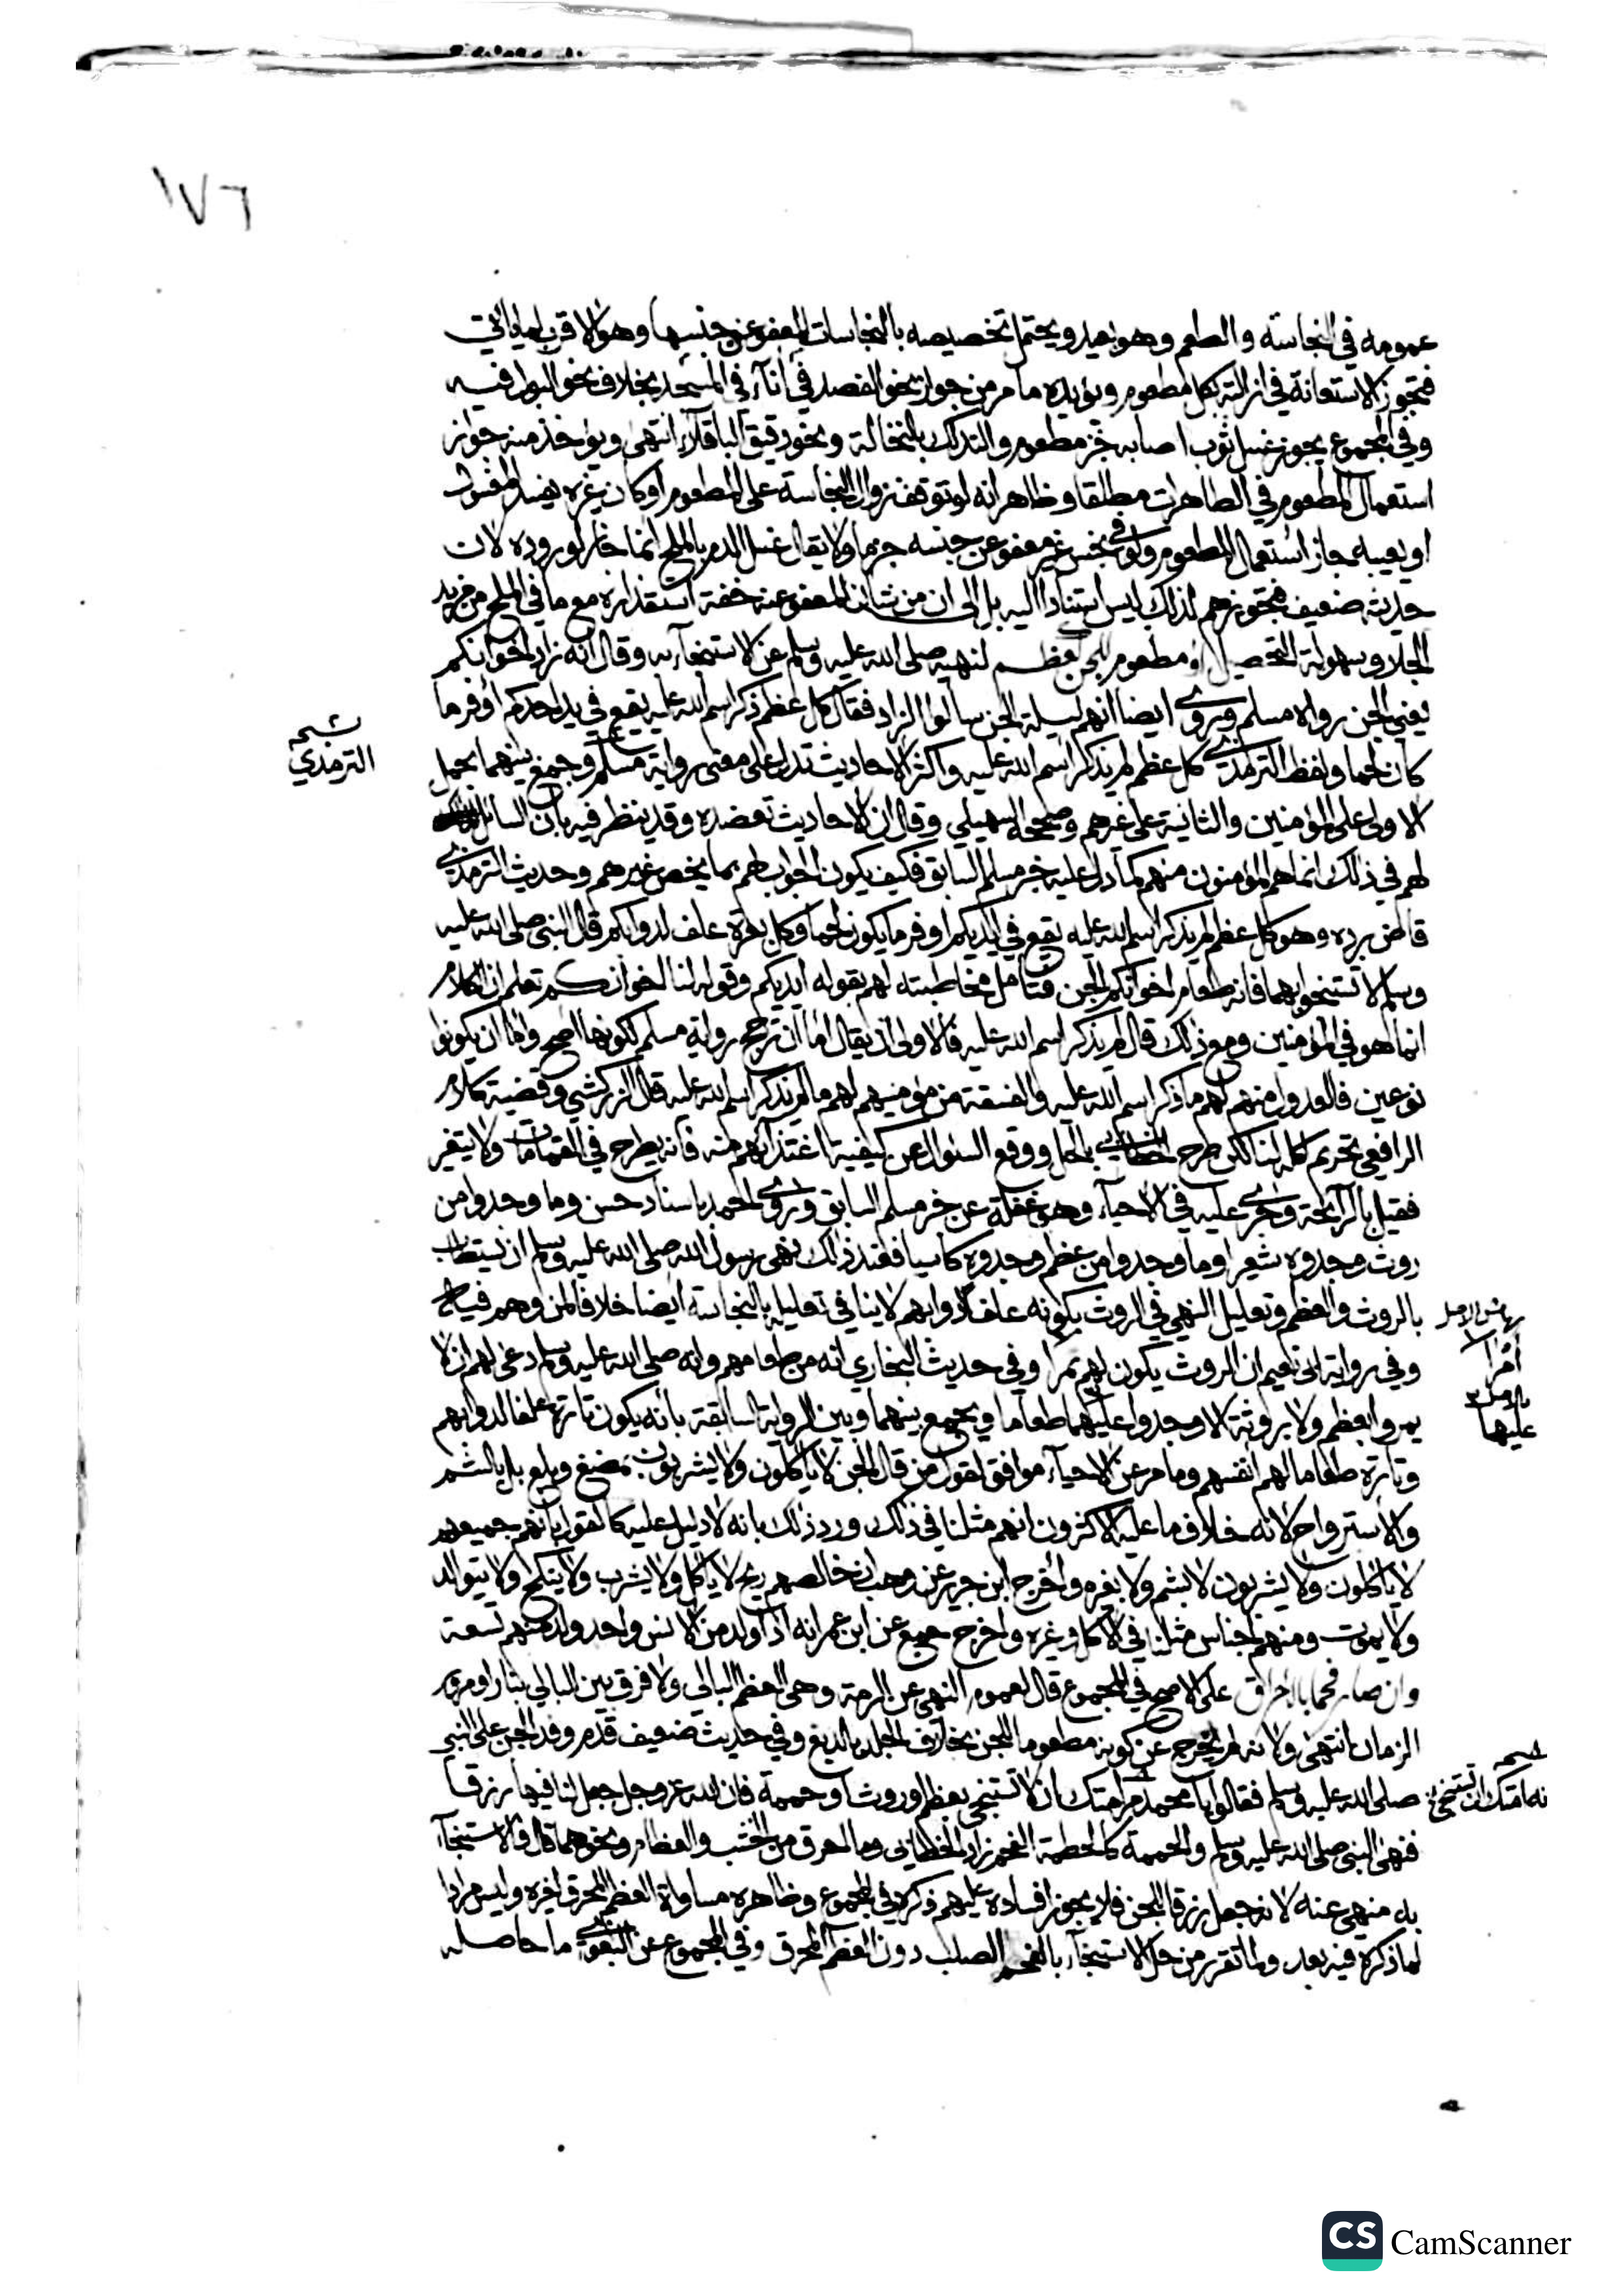 ١٧٦
عمومه في النجاسة والطعم وهو بعيد ويحتمل تخصيصه بالنجاسات المعفو عن جنسها وهو الاقرب لما ياتي
فتجوز الاستعانة في ازالته بكل مطعوم ويؤيده ما مر من جواز نحو الفصد في اناء في المسجد بخلاف نحو البول فيه
وفي المجموع يجوز غسل ثوب اصابه بمطعوم والتدلك بالنخالة ونحو دقيق الباقلاء انتهى ويؤخذ منه جواز
استعمال المطعوم في الطاهرات مطلقا وظاهر انه لو توقف زوال النجاسة على المطعوم او كان غيره يفسد المغسول
او يعيبه جاز استعمال المطعوم ولو في نجس غير معفو عن جنسه جزما ولا يقال غسل الدم بالملح انما جاز لوروده لان
حديثه ضعيف فتجويزهم لذلك ليس استنادا اليه بل الى ان من شان المعفو عنه خفة استقذاره مع ما في الملح من مزيد
الجلاء وسهولة التحصيل او مطعوم للجن كعظم لنهيه صلى الله عليه وسلم عن الاستنجاء به وقال انه زاد اخوانكم
يعني الجن رواه مسلم وروى ايضا انهم ليلة الجن سالوا الزاد فقال كل عظم ذكر اسم الله عليه يقع في يد احدكم اوفر ما
كان لحما ولفظ الترمذي كل عظم لم يذكر اسم الله عليه واكثر الاحاديث تدل على معنى رواية مسلم وجمع بينهما بحمل
الترمذي
الاولى على المؤمنين والثانية على غيرهم وصححه السهيلي وقال ان الاحاديث تعضده وقد ينظر فيه بان السائل
لهم في ذلك انما هم المؤمنون منهم كما دل عليه خبر مسلم السابق فكيف يكون الجواب لهم بما يخص غيرهم وحديث الترمذي
قاض برده وهو كل عظم لم يذكر اسم الله عليه يقع في ايديكم اوفر ما يكون لحما وكل بعرة علف لدوابكم قال النبي صلى الله عليه
وسلم لا تستنجوا بهما فانه طعام اخوانكم الجن فتامل مخاطبته لهم بقوله ايديكم وقوله لنا اخوانكم تعلم ان الكلام
انما هو في المؤمنين ومع ذلك قال لم يذكر اسم الله عليه فالاولى ان يقال اما ان ترجح رواية مسلم لكونها اصح واما ان يكونوا
نوعين فالعدول منهم لهم ما ذكر اسم الله عليه والفسقة من مؤمنيهم لهم ما لم يذكر اسم الله عليه قال الزركشي وقضية كلام
الرافعي تحريم اكله لنا لكن صرح الخطابي بالحل ووقع السؤال عن كيفية اغتذائهم منه فانه يطرح في القمامات ولا يتغير
فقيل بالرائحة وجرى عليه في الاحياء وهو غفلة عن خبر مسلم السابق وروى احمد باسناد حسن وما وجدوا من
روث وجدوه شعيرا وما وجدوا من عظم وجدوه كاسيا فعند ذلك نهى رسول الله صلى الله عليه وسلم ان يستطاب
بالروث والعظم وتعليل النهي في الروث بكونه علف دوابهم لا ينافي تعليله بالنجاسة ايضا خلافا لمن وهم فيه
وفي رواية لابي نعيم ان الروث يكون لهم تمرا وفي حديث البخاري انه من طعامهم وانه صلى الله عليه وسلم دعى لهم ان لا
يمروا بعظم ولا بروثة الا وجدوا عليها طعاما ويجمع بينهما وبين الرواية السابقة بانه يكون تارة علفا لدوابهم
عليها
وتارة طعاما لهم انفسهم وما مر عن الاحياء موافق لقول من قال الجن لا ياكلون ولا يشربون بمضغ وبلع بل بالشم
والاسترواح لانه خلاف ما عليه الاكثرون انهم مثلنا في ذلك ورد ذلك بانه لا دليل عليه كالقول بانهم جميعهم
لا ياكلون ولا يشربون لا بشم ولا بغيره واخرج ابن جرير عن وهب ان خالصهم ريح لا ياكل ولا يشرب ولا ينكح ولا يتوالد
ولا يموت ومنهم اجناس مثلنا في الاكل وغيره واخرج جمع عن ابن عمر انه اذا ولد من الانس واحد ولد منهم تسعة
وان صار فحما بالاحراق على الاصح في المجموع قال لعموم النهي عن الرمة وهي العظم البالي ولا فرق بين البالي بنار او مرور
الزمان انتهى ولانه لم يخرج عن كونه مطعوما للجن بخلاف الجلد بالدبغ وفي حديث ضعيف قدم وفد الجن على النبي
صلى الله عليه وسلم فقالوا يا محمد مر امتك ان لا تستنجي بعظم او روث او حممة فان الله عز وجل جعل لنا فيها رزقا
فنهى النبي صلى الله عليه وسلم والحممة كالحطمة الفحم زاد الخطابي وما احرق من الخشب والعظام ونحوهما قال والاستنجاء
به منهي عنه لانه جعل رزقا للجن فلا يجوز افساده عليهم ذكره في المجموع وظاهره مساواة العظم المحرق لغيره وليس مرادا
لما ذكره فيه بعد ولما تقرر من حل الاستنجاء بالفحم الصلب دون العظم المحرق وفي المجموع عن البغوي ما حاصله
CS CamScanner